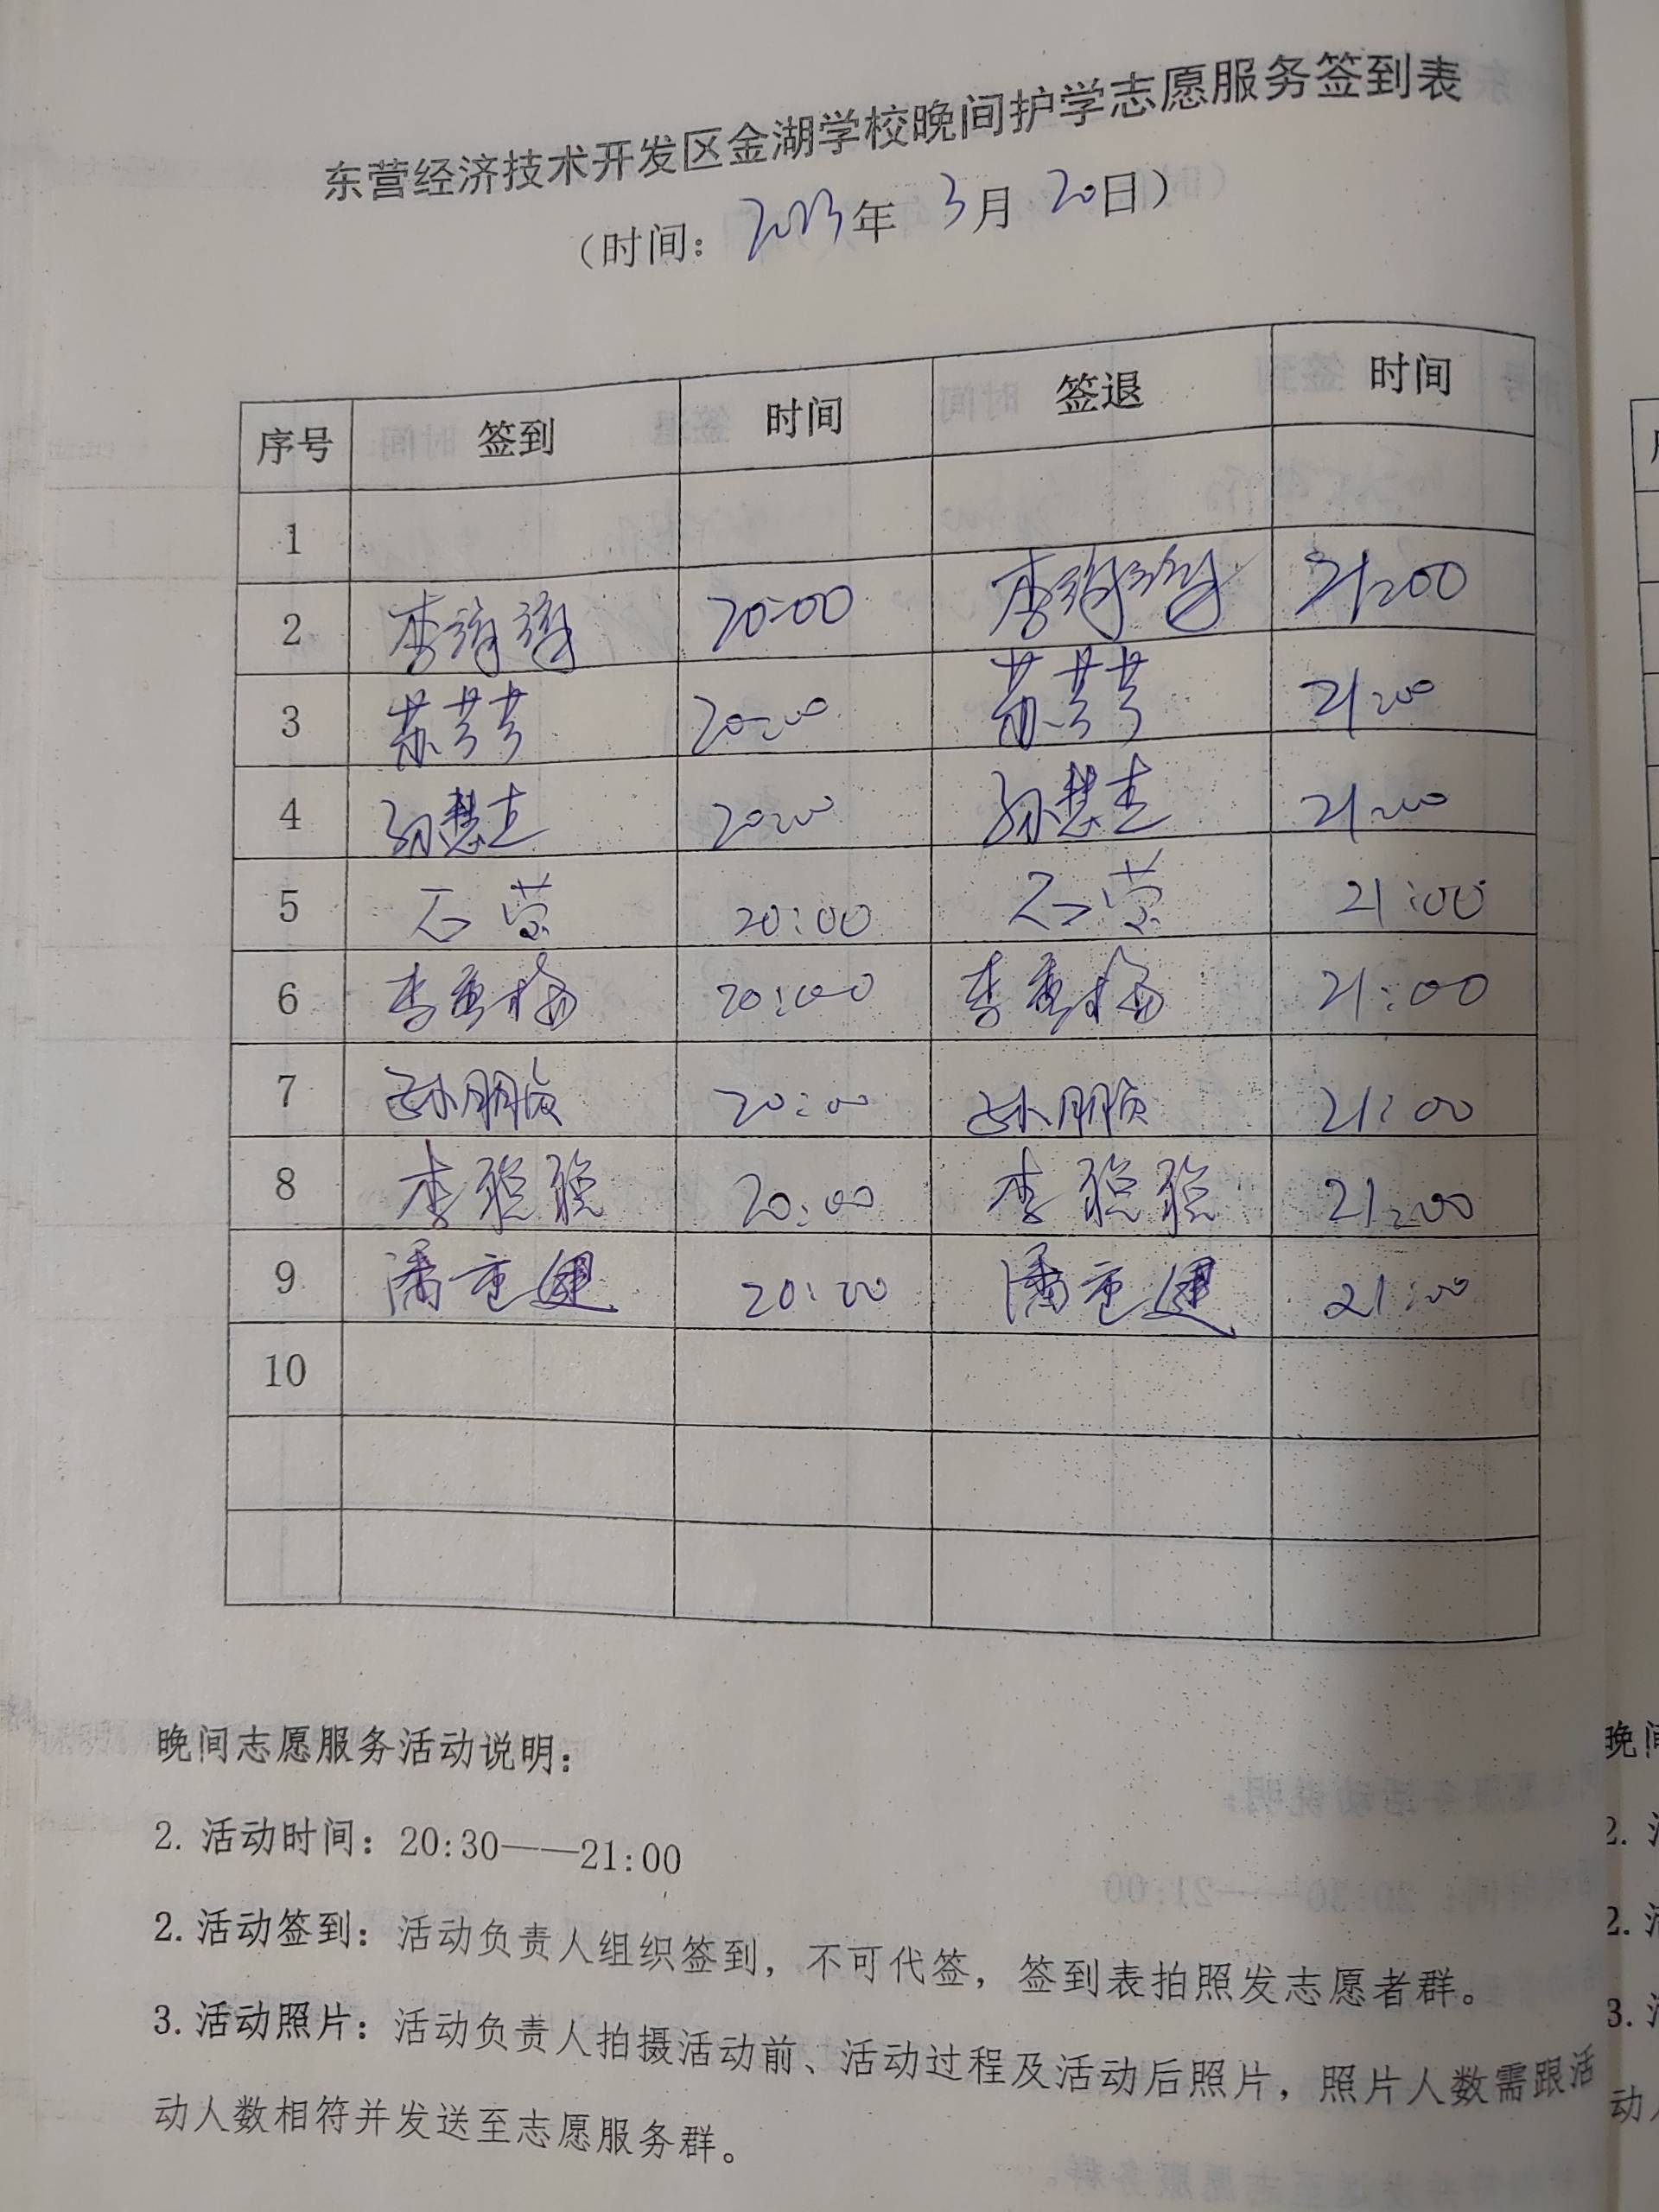 东营经济技术开发区金湖学校晚间护学志愿服务签到表
（时间：2023年 3月 20日）
序号 签到 时间 签退 时间
1
2 李 20:00 李 21:00
3 苏芳芳 20:00 苏芳芳 21:00
4 孙慧圭 20:00 孙慧圭 21:00
5 石莹 20:00 石莹 21:00
6 李重梅 20:00 李重梅 21:00
7 孙鹏贞 20:00 孙鹏贞 21:00
8 李聪聪 20:00 李聪聪 21:00
9 潘重建 20:00 潘重建 21:00
10
晚间志愿服务活动说明：
2. 活动时间：20:30——21:00
2. 活动签到：活动负责人组织签到，不可代签，签到表拍照发志愿者群。
3. 活动照片：活动负责人拍摄活动前、活动过程及活动后照片，照片人数需跟活
动人数相符并发送至志愿服务群。